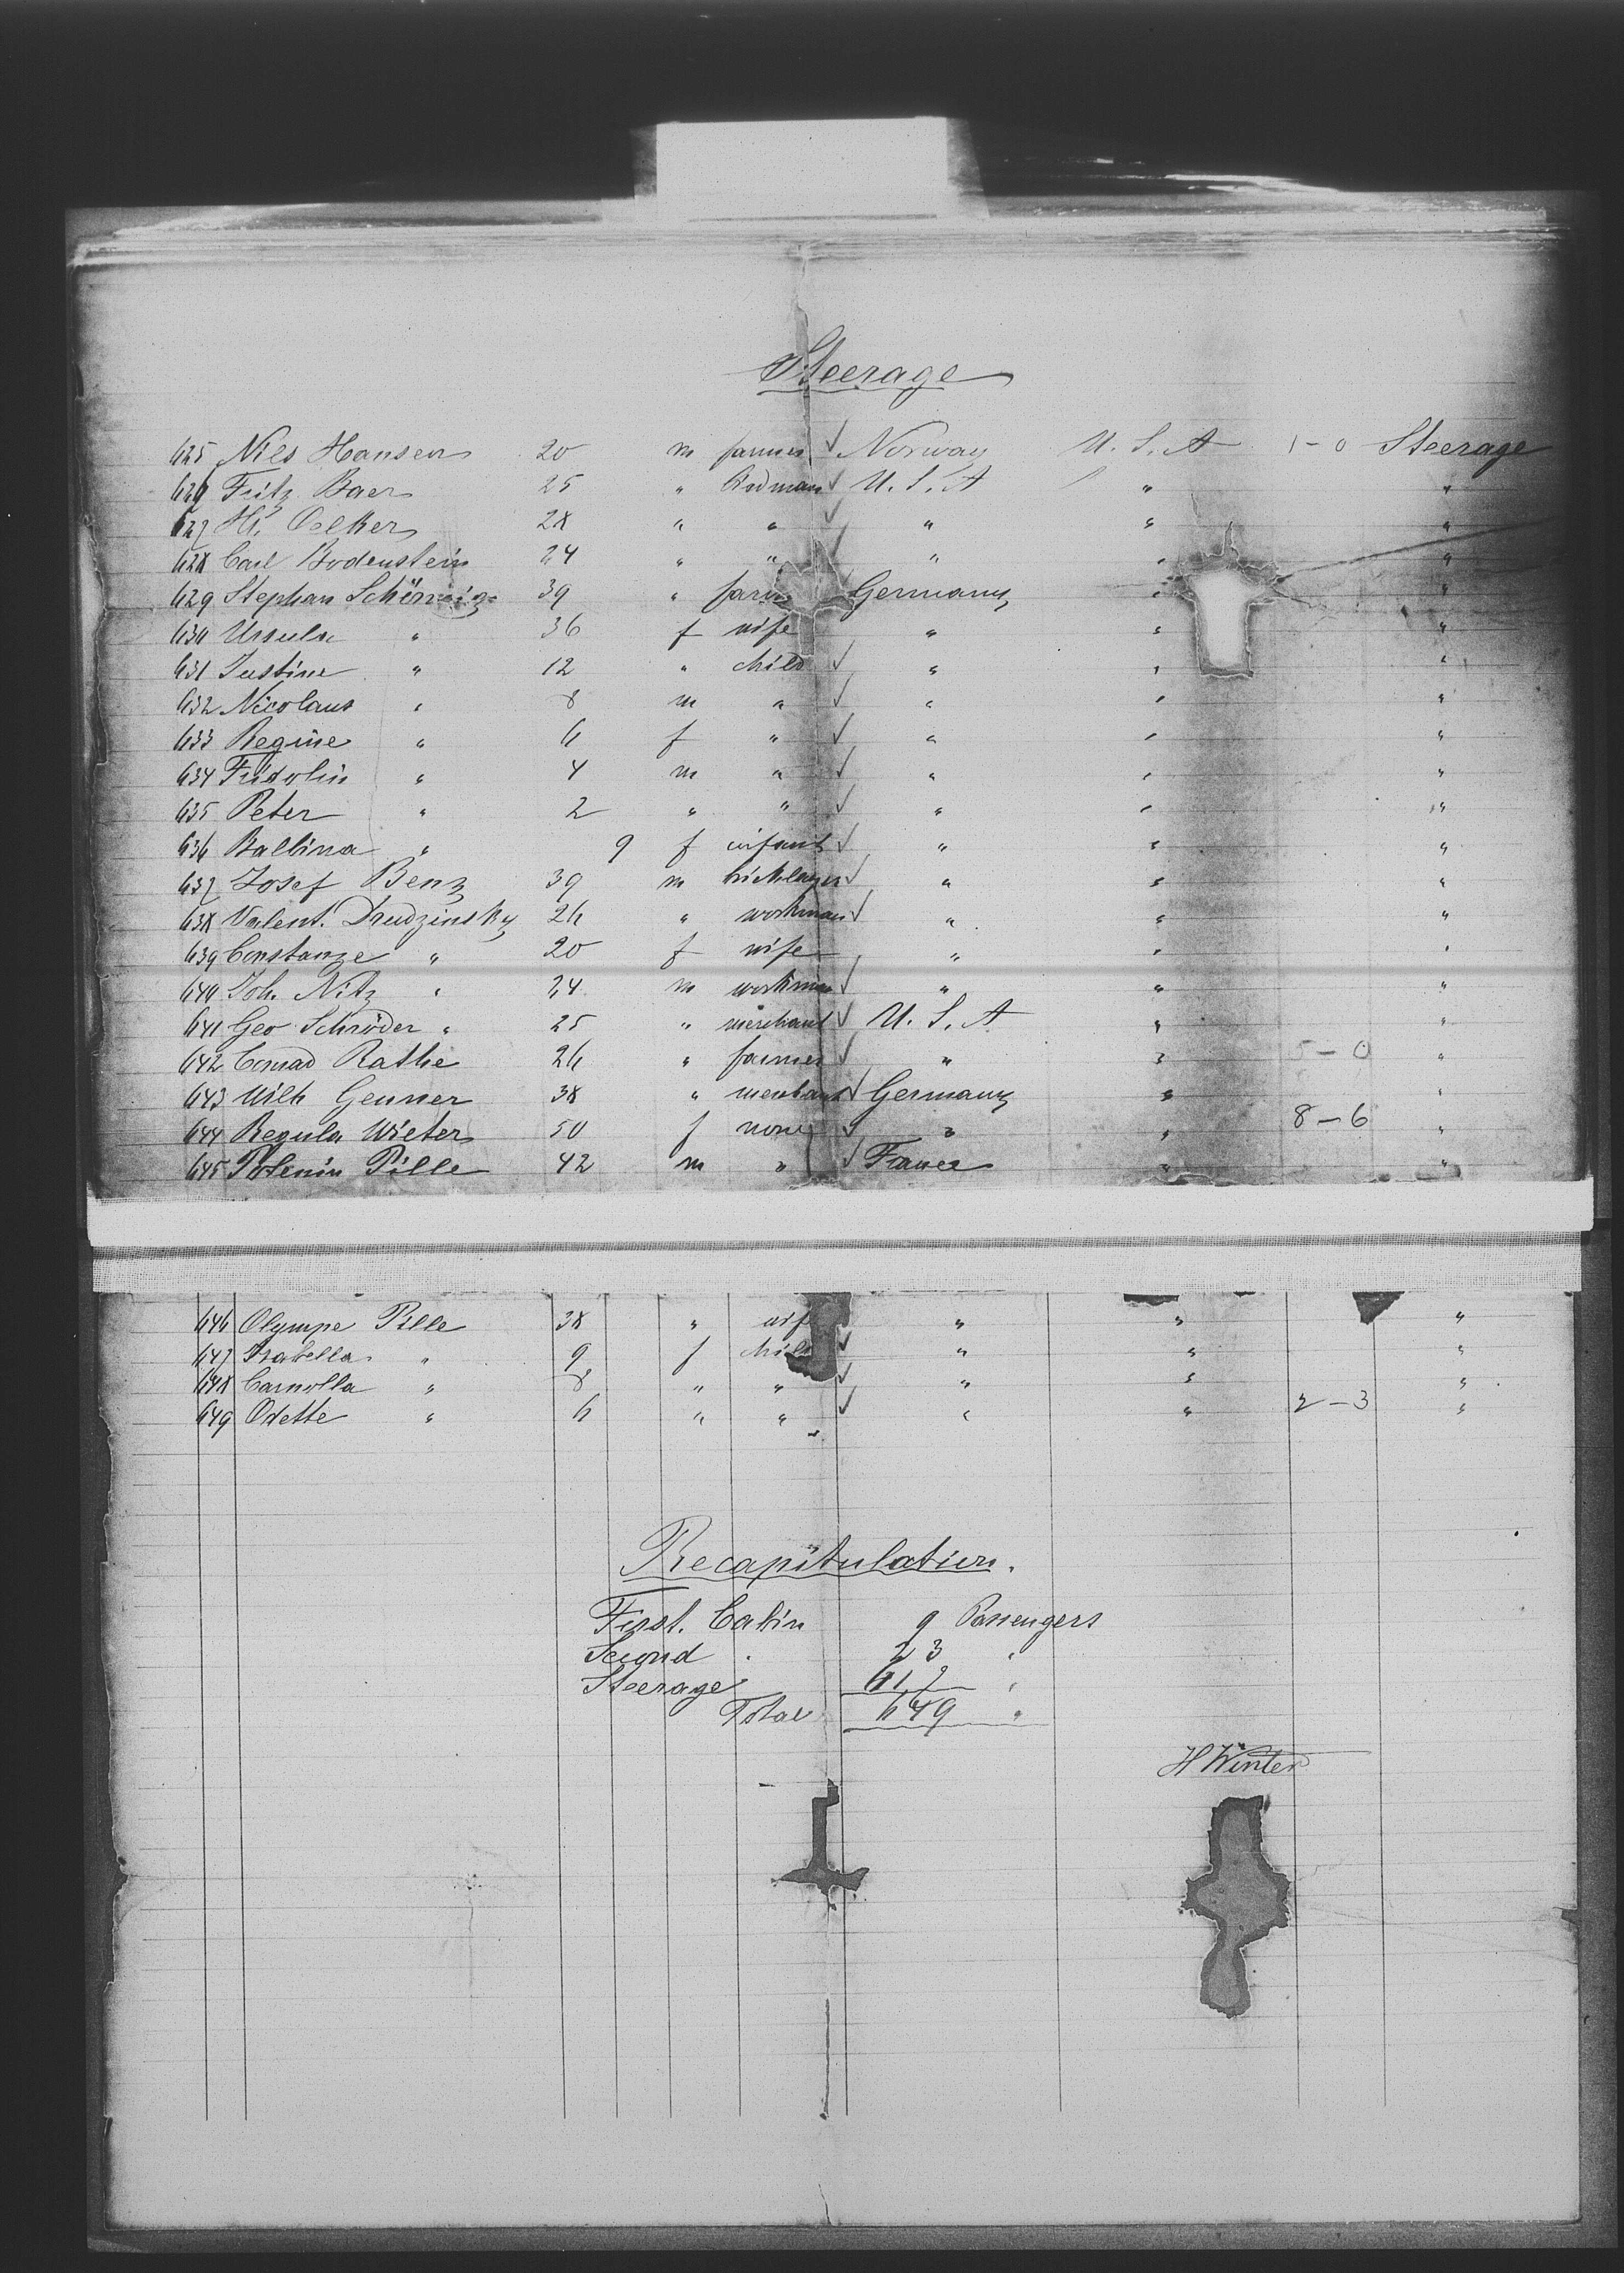 Steerage
625 Nils Hansen 20 m farmer ✓ Norway U. S. A 1-0 Steerage
626 Fritz Baer 25 " ✓ U. S. A " "
627 Hr. Oelker 28 " " ✓ " " "
628 Carl Bodenstein 24 " " ✓ " " "
629 Stephan 39 " Germany " "
630 Ursula " 36 f wife " " "
631 Justine " 12 " child ✓ " " "
632 Nicolaus " 8 m " ✓ " " "
633 Regine " 6 f " ✓ " " "
634 Fridolin " 4 m " ✓ " " "
635 Peter " 2 " " ✓ " " "
636 Balbina " 9 f infant ✓ " " "
637 Josef Benz 39 m bricklayer ✓ " " "
638 Valent. Drudzinsky 26 " workman ✓ " " "
639 Constanze " 20 f wife " " "
640 Joh. Nitz " 24 m workman ✓ " " "
641 Geo Schröder " 25 " merchant ✓ U. S. A " "
642 Conrad Rathe 26 " farmer ✓ " " 5-0 "
643 Wilh Genner 38 " merchant ✓ Germany " "
644 Regula Wieter 50 f none ✓ " " 8-6 "
645 Pille 42 m " ✓ France " "
646 Olympe Pille 38 " wife " " "
647 Isabella " 9 f child ✓ " " "
648 Carnolla " 8 " " ✓ " " "
649 Odette " 6 " " ✓ " " 2-3 "
Recapitulation.
First. Cabin 9 Passengers
Second " 23 "
Steerage 617 "
Total 649 "
H Winter